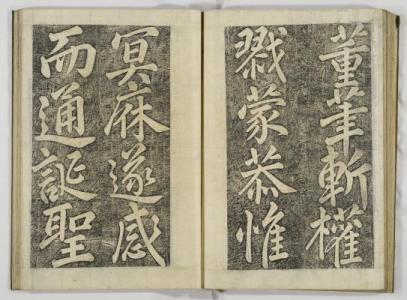 董斬權
戮蒙恭惟
冥庥遂感
而通誕聖